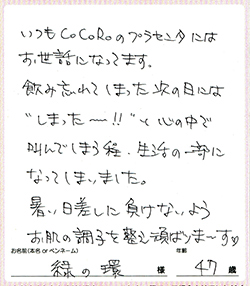 いつもCoCoRoのプラセンタには
お世話になってます。
飲み忘れてしまった次の日には
"しまった〜!!"と心の中で
叫んでしまう程、生活の一部に
なってしまいました。
暑い日差しに負けないよう
お肌の調子を整え頑ばりま〜す♡
お名前(本名 or ペンネーム)
年齢
緑の環 様 47 歳